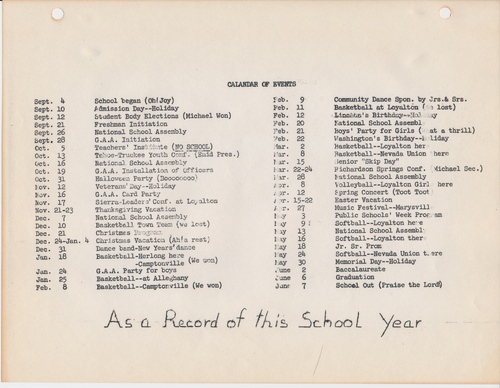 CALANDAR OF EVENTS
Sept. 4 School began (Oh!Joy)
Sept. 10 Admission Day--Holiday
Sept. 12 Student Body Elections (Michael Won)
Sept. 21 Freshman Initiation
Sept. 26 National School Assembly
Sept. 28 G.A.A. Initiation
Oct. 5 Teachers' Institute (NO SCHOOL)
Oct. 13 Tahoe-Truckee Youth Conf. (Pres.)
Oct. 16 National School Assembly
Oct. 19 G.A.A. Installation of Officers
Oct. 31 Halloween Party
Nov. 12 Veterans' Day--Holiday
Nov. 16 G.A.A. Card Party
Nov. 17 Sierra-Leaders' Conf. at Loyalton
Nov. 21-23 Thanksgiving Vacation
Dec. 7 National School Assembly
Dec. 10 Basketball Town Team (we lost)
Dec. 21 Christmas Program
Dec. 24-Jan. 4 Christmas Vacation (Ah!a rest)
Dec. 31 Dance band-New Years'dance
Jan. 18 Basketball-Herlong here
-Camptonville (We won)
Jan. 24 G.A.A. Party for boys
Jan. 25 Basketball--at Alleghany
Feb. 8 Basketball--Camptonville (We won)
Feb. 9 Community Dance Spon. by Jrs.& Srs.
Feb. 11 Basketball at Loyalton (lost)
Feb. 12 Lincoln's Birthday--
Feb. 20 National School Assembl
Feb. 21 Boys' Party for Girls (at a thrill)
Feb. 22 Washington's Birthday--
Mar. 2 Basketball--Loyalton here
Mar. 8 Basketball--Nevada Union here
Mar. 15 Senior "Skip Day"
Mar. 22-24 Richardson Springs Conf. (Michael Sec.)
Mar. 28 National School Assembl
Apr. 8 Volleyball--Loyalton Girl here
Apr. 12 Spring Concert (Toot Toot
Apr. 15-22 Easter Vacation
Apr. 27 Music Festival--Marysvill
May 3 Public Schools' Week Program
May 9 Softball--Loyalton here
May 13 National School Assembl
May 16 Softball--Loyalton there
May 18 Jr. Sr. Prom
May 24 Softball--Nevada Union there
May 30 Memorial Day--Holiday
June 2 Baccalaureate
June 6 Graduation
June 7 School Out (Praise the Lord)
As a Record of this School Year